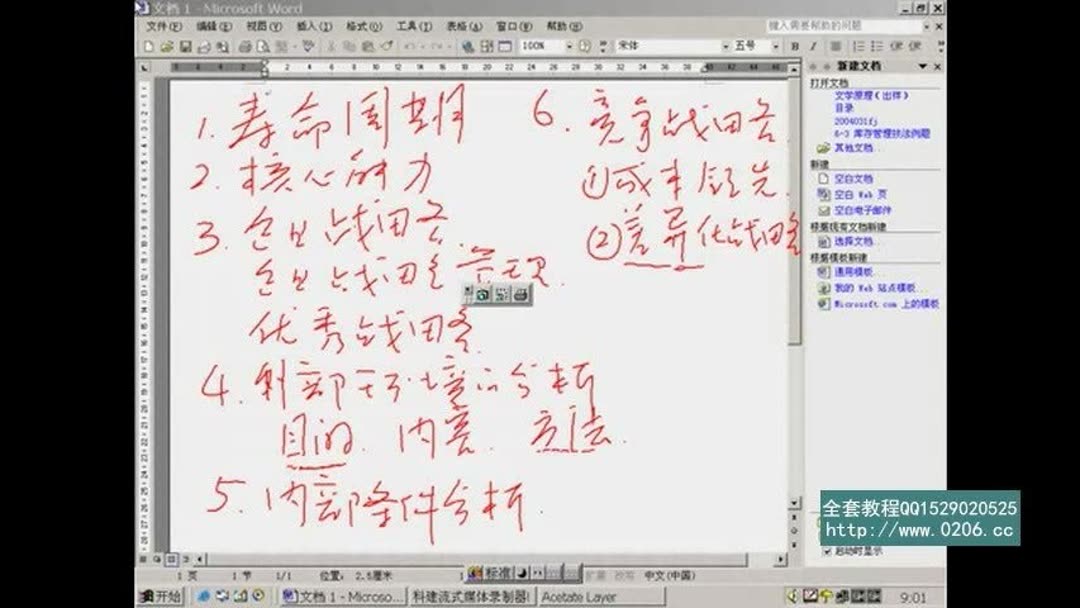 文档 1 - Microsoft Word
文件(F) 编辑(E) 视图(V) 插入(I) 格式(O) 工具(T) 表格(A) 窗口(W) 帮助(H)
键入需要帮助的问题
100% 宋体 五号 B I
新建文档
打开文档
文学原理(出样)
目录
2004031fj
6-3 库存管理技法例题
其他文档...
新建
空白文档
空白 Web 页
空白电子邮件
根据现有文档新建
选择文档...
根据模板新建
通用模板...
我的 Web 站点模板...
Microsoft.com 上的模板
启动时显示
1. 寿命周期
2. 核心能力
3. 企业战略
企业战略管理.
优秀战略
4. 外部环境的分析
目的. 内容. 方法.
5. 内部条件分析.
6. 竞争战略
①成本领先.
②差异化战略
全套教程QQ1529020525
http://www.0206.cc
1 页 1 节 1/1 位置: 2.5厘米 标准 扩展 改写 中文(中国)
开始 文档 1 - Microso... 科建流式媒体录制器! Acetate Layer 9:01